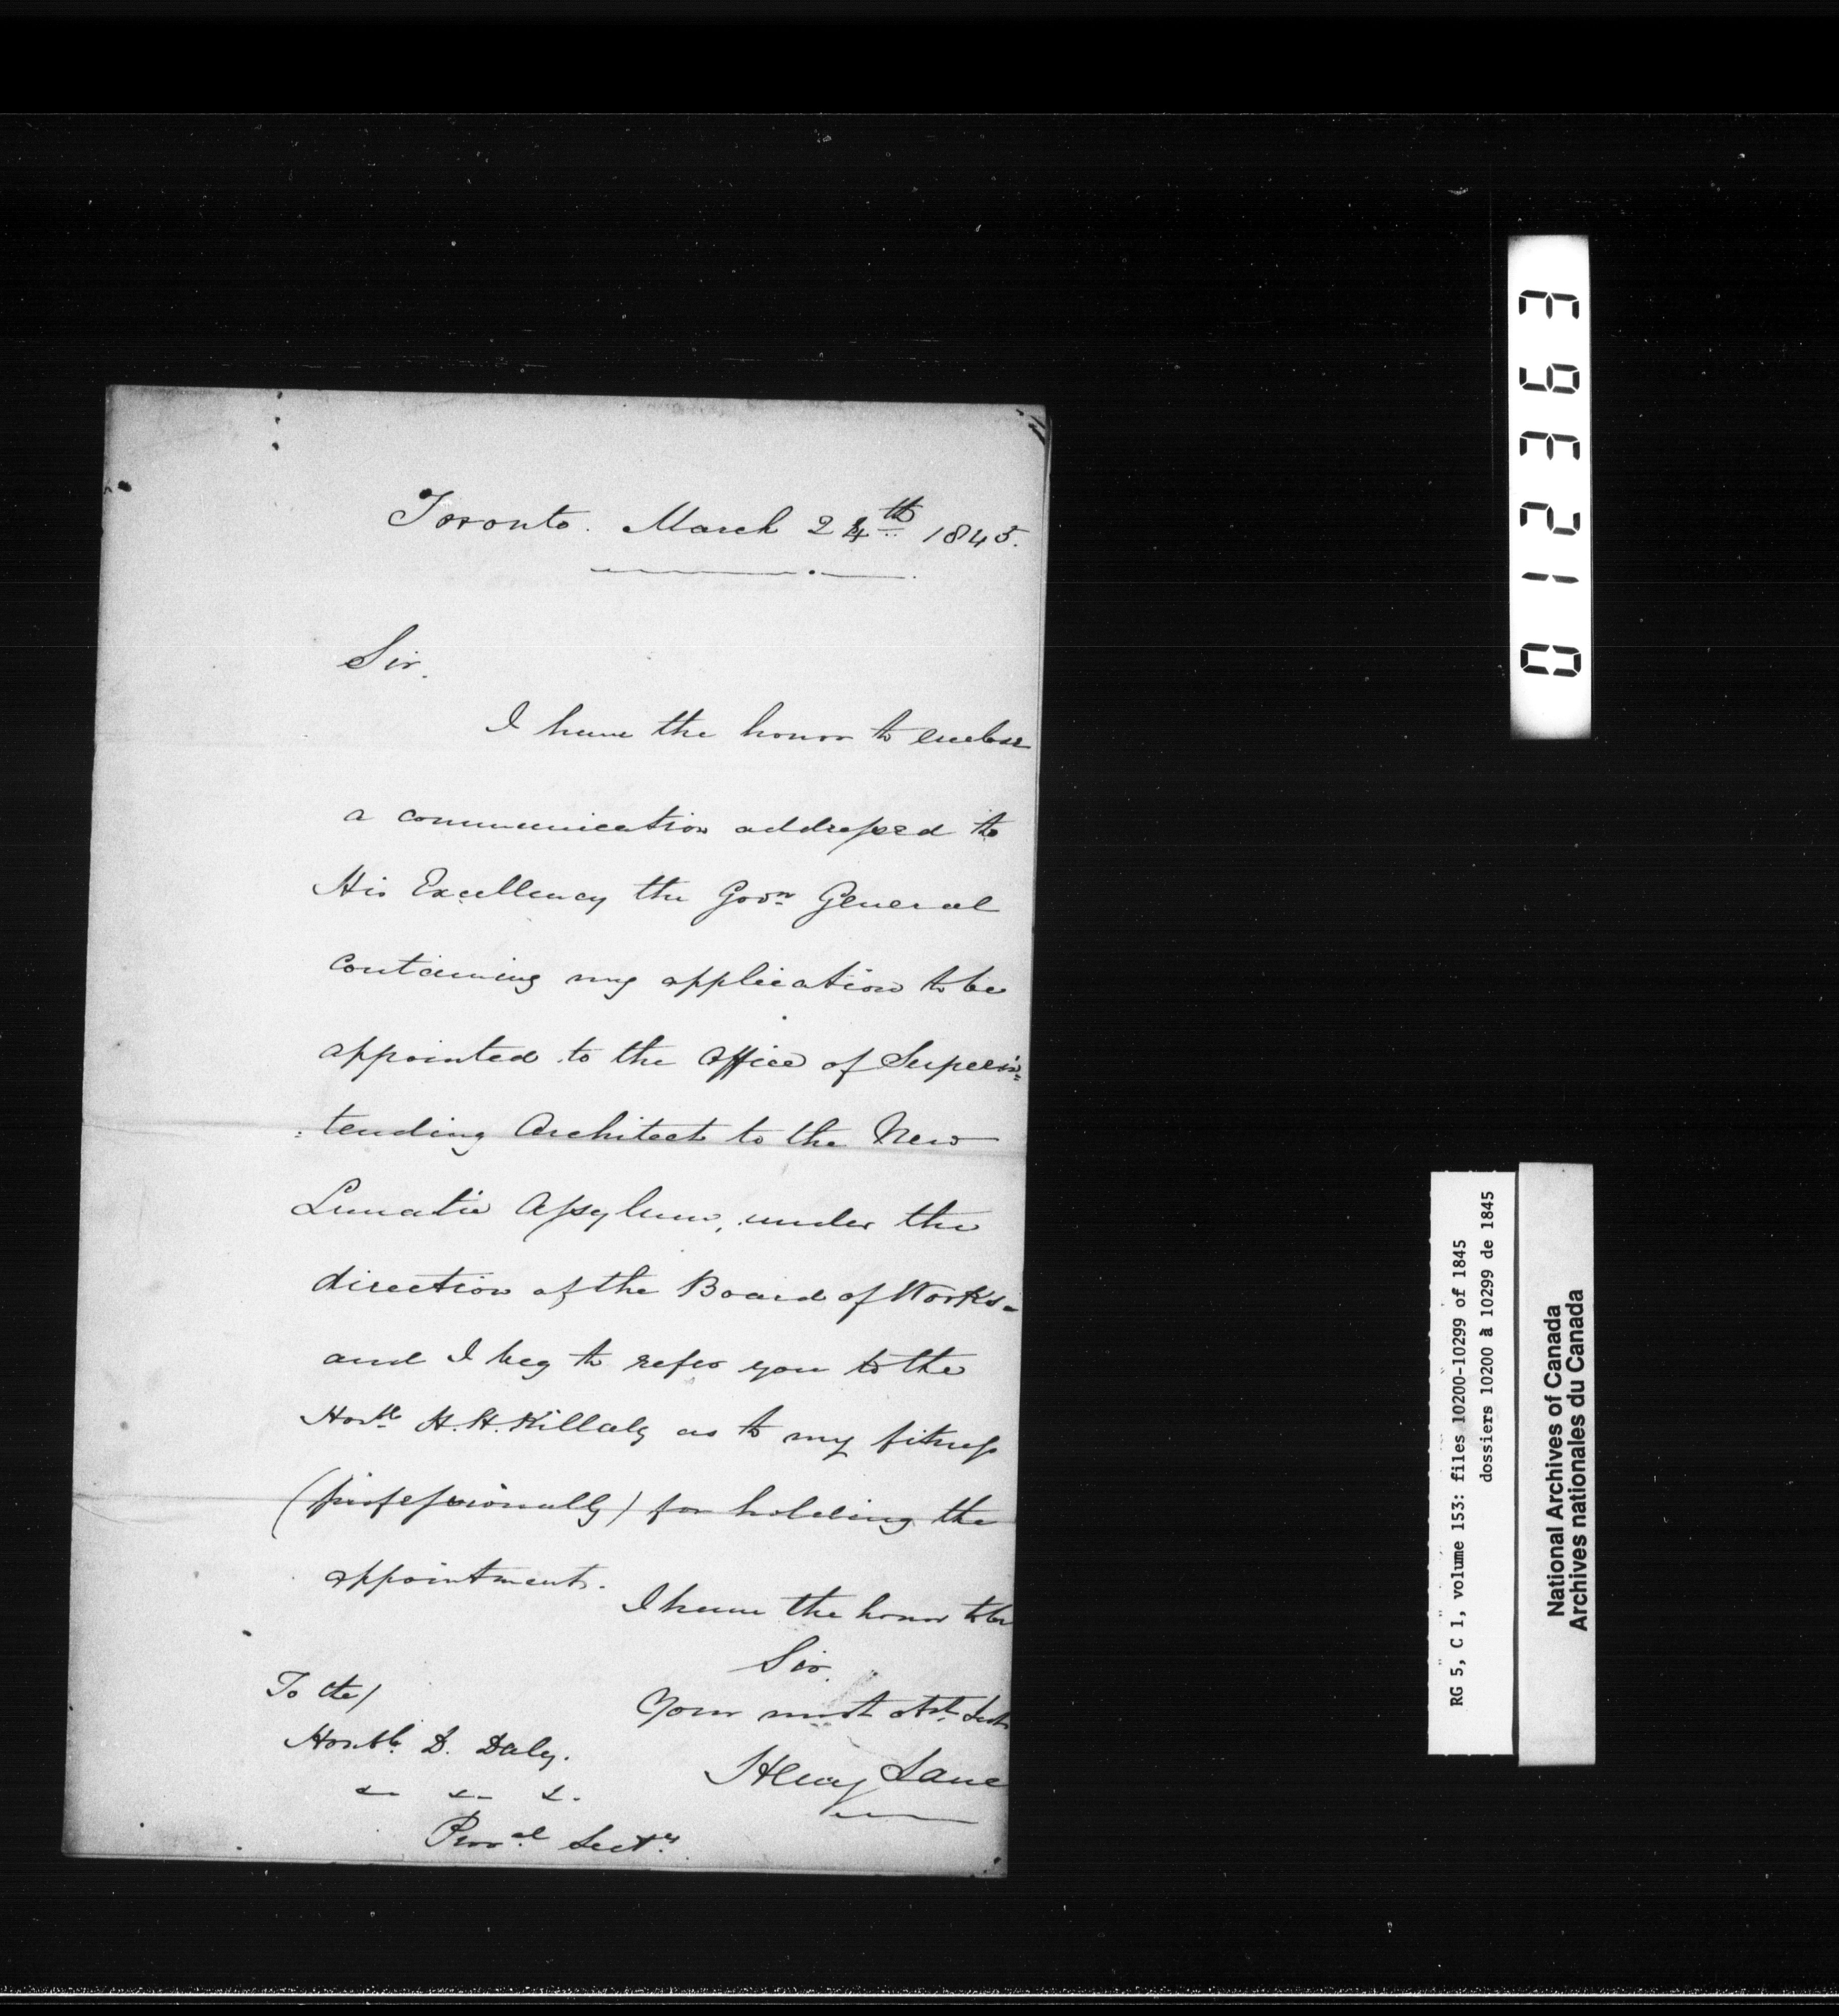 Toronto. March 24th 1845.
Sir.
I have the honor to enclose
a communication addressed to
His Excellency the Govr. General
containing my application to be
appointed to the Office of Superin=
=tending Architect to the New
Lunatic Assylum, under the
direction of the Board of Works-
and I beg to refer you to the
Honble H.H. Killaly as to my fitness
(professionally) for holding the
appointment.
I have the honor to be
Sir.
Your most obt. Servt
Henry Lane
To the/
Honble. D. Daly.
&c &c &c.
Provcal Secty.
012363
RG 5, C 1, volume 153: files 10200-10299 of 1845
dossiers 10200 à 10299 de 1845
National Archives of Canada
Archives nationales du Canada